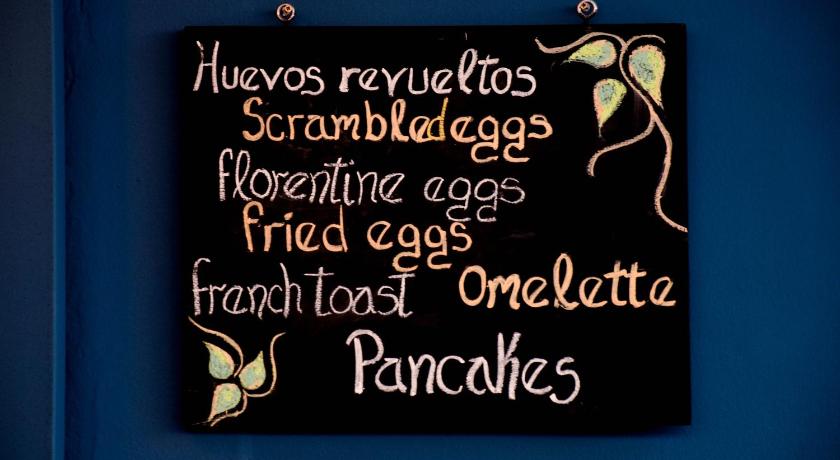 Huevos revueltos
Scrambled eggs
florentine eggs
fried eggs
french toast Omelette
Pancakes